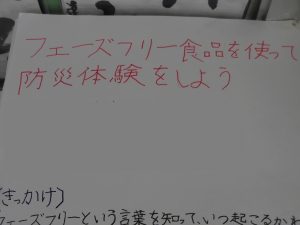 フェーズフリー食品を使って
防災体験をしよう
(きっかけ)
フェーズフリーという言葉を知って、いつ起こるかわ